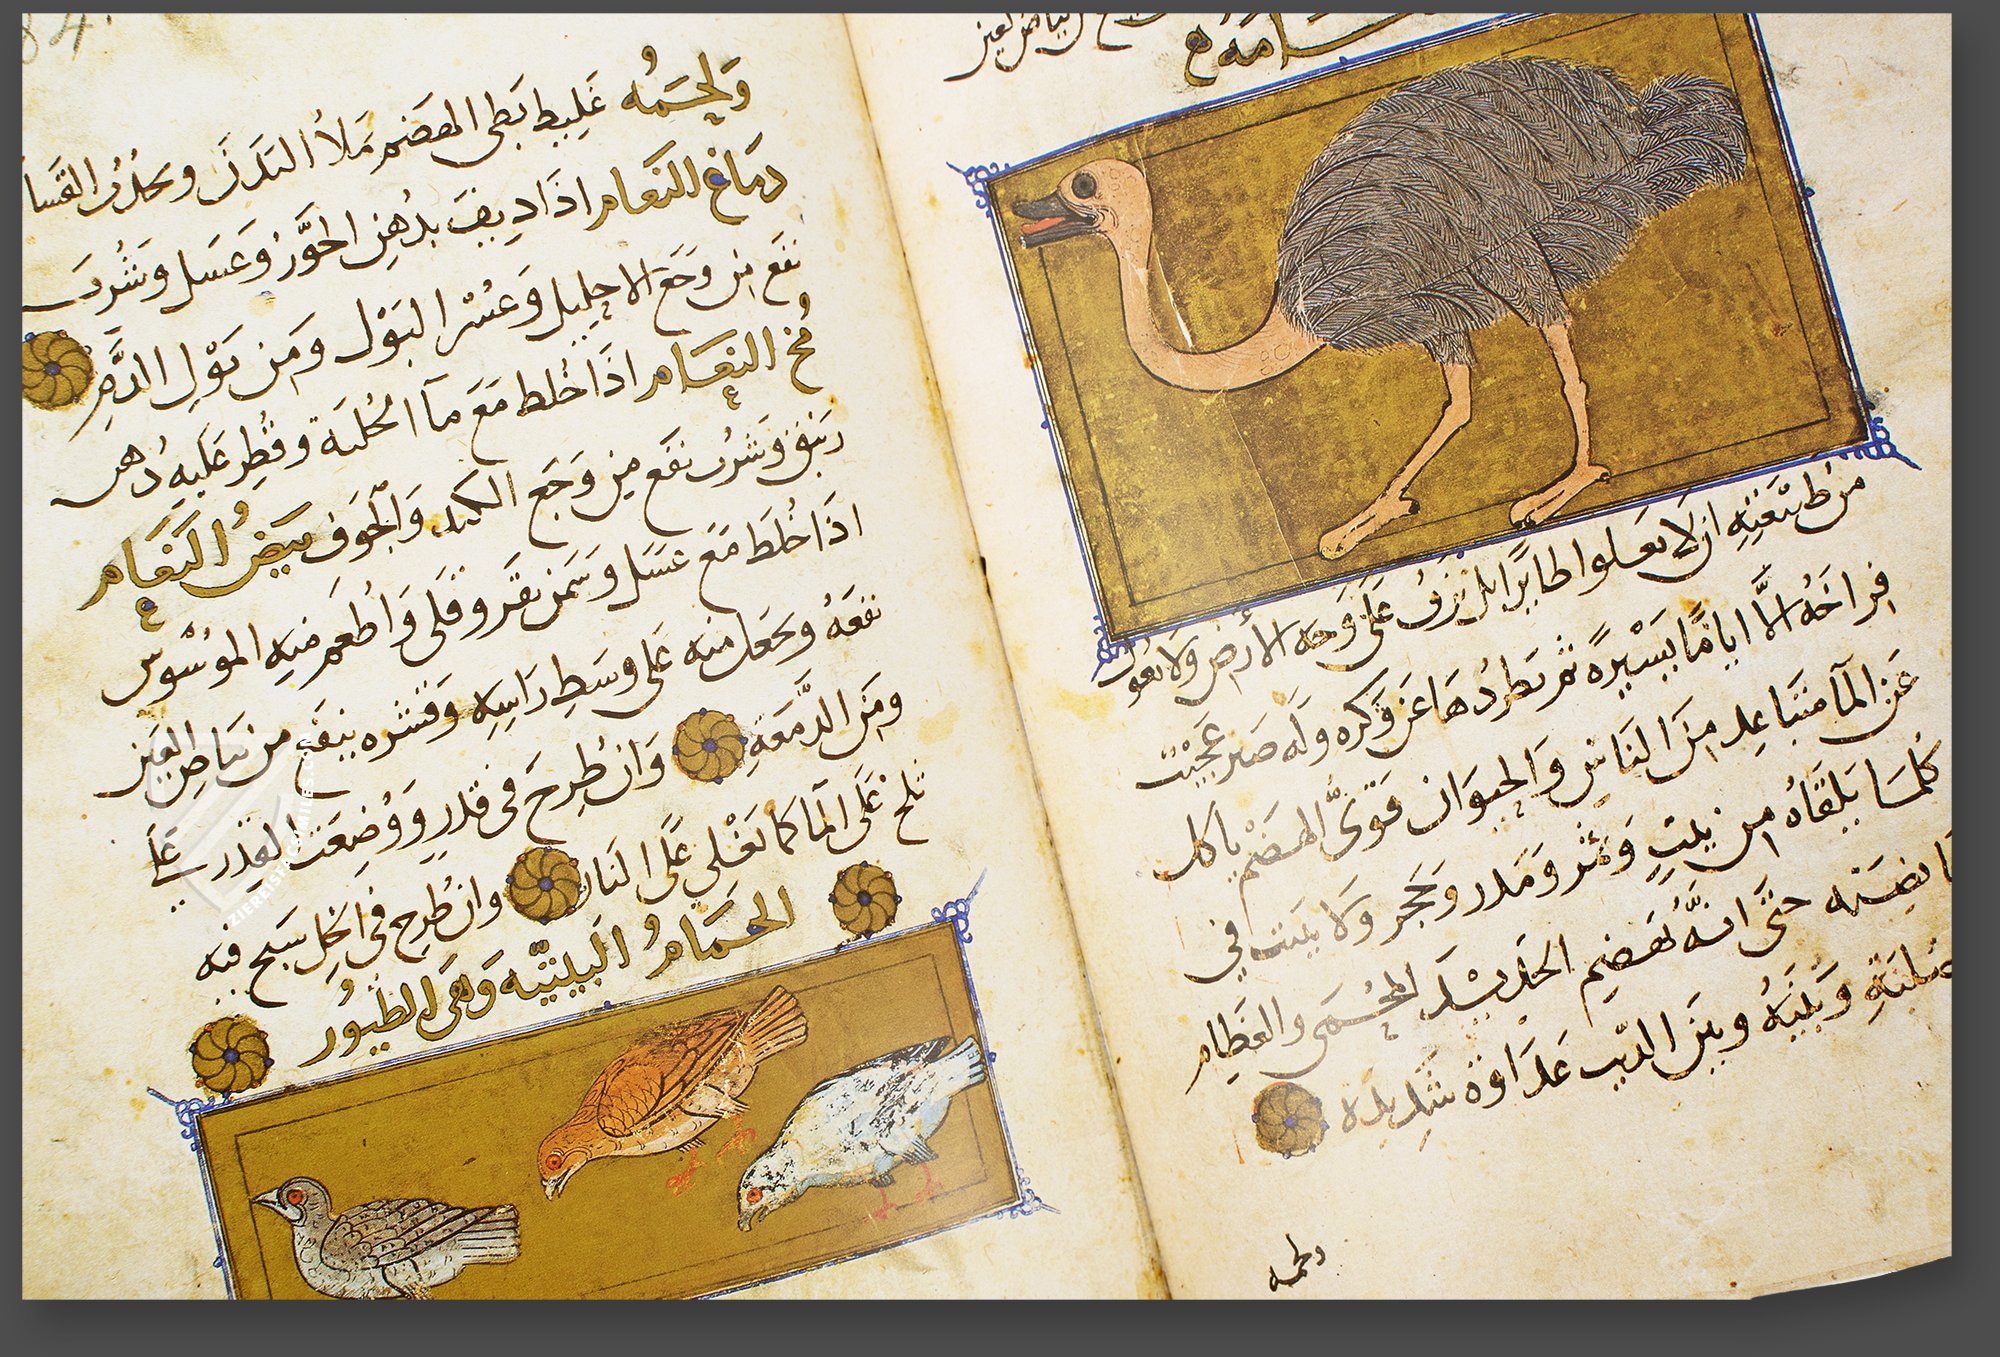 بياض العين
من طبيعته ان لا يعلوا طايرًا بل يزف على وجه الأرض ولا يعول
فراخه الّا ايامًا يسيرةً ثم يطردها عن وكره وله صبر عجيب
عن المآ متباعد من الناس والحيوان قوىّ الهضم ياكل
كلما يلقاه من ومدر وحجر ولا في
حتّى انّه يهضم الحديد المحمى والعظام
وبينه وبين الدّب عداوة شديدة
ولحمه
84.
وَلحمُه غليظ بطى الهضم ملأ البدن
دماغ النعام اذا ديف بدهن الجَوّز وعسل وشرب
نفع من وجع الاحليل وعسر البَوْل ومن بَوْل الدَّم
مُخ النعام اذا خلط مع مآ الحُلبة وقُطِر عليه دهن
زنبق وشرب نفع من وجع الكبد والجوف بيضُ النعام
اذا خُلط مع عسل وسمن بقر وقلى واُطعم منه الموُسْوس
نفعهُ ويجعل منه على وسط راسه وقشره ينفع من بياض العين
ومن الدَّمعَةِ وان طُرِحَ فى قدر ووُضِعَت القدر على
ثلج غلى المآ كما تغْلى على النار وان طُرِح فى الخل سبح فيه
الحمامُ البيتيّه وهى الطيُور
ZIEREISFACSIMILES.COM